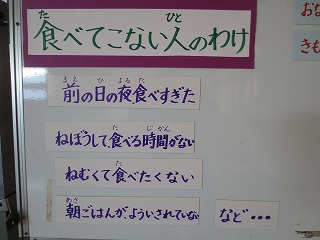 食べてこない人のわけ
前の日の夜食べすぎた
ねぼうして、食べる時間がない
ねむくて食べたくない
朝ごはんが、よういされていない
など・・・
おな
きも